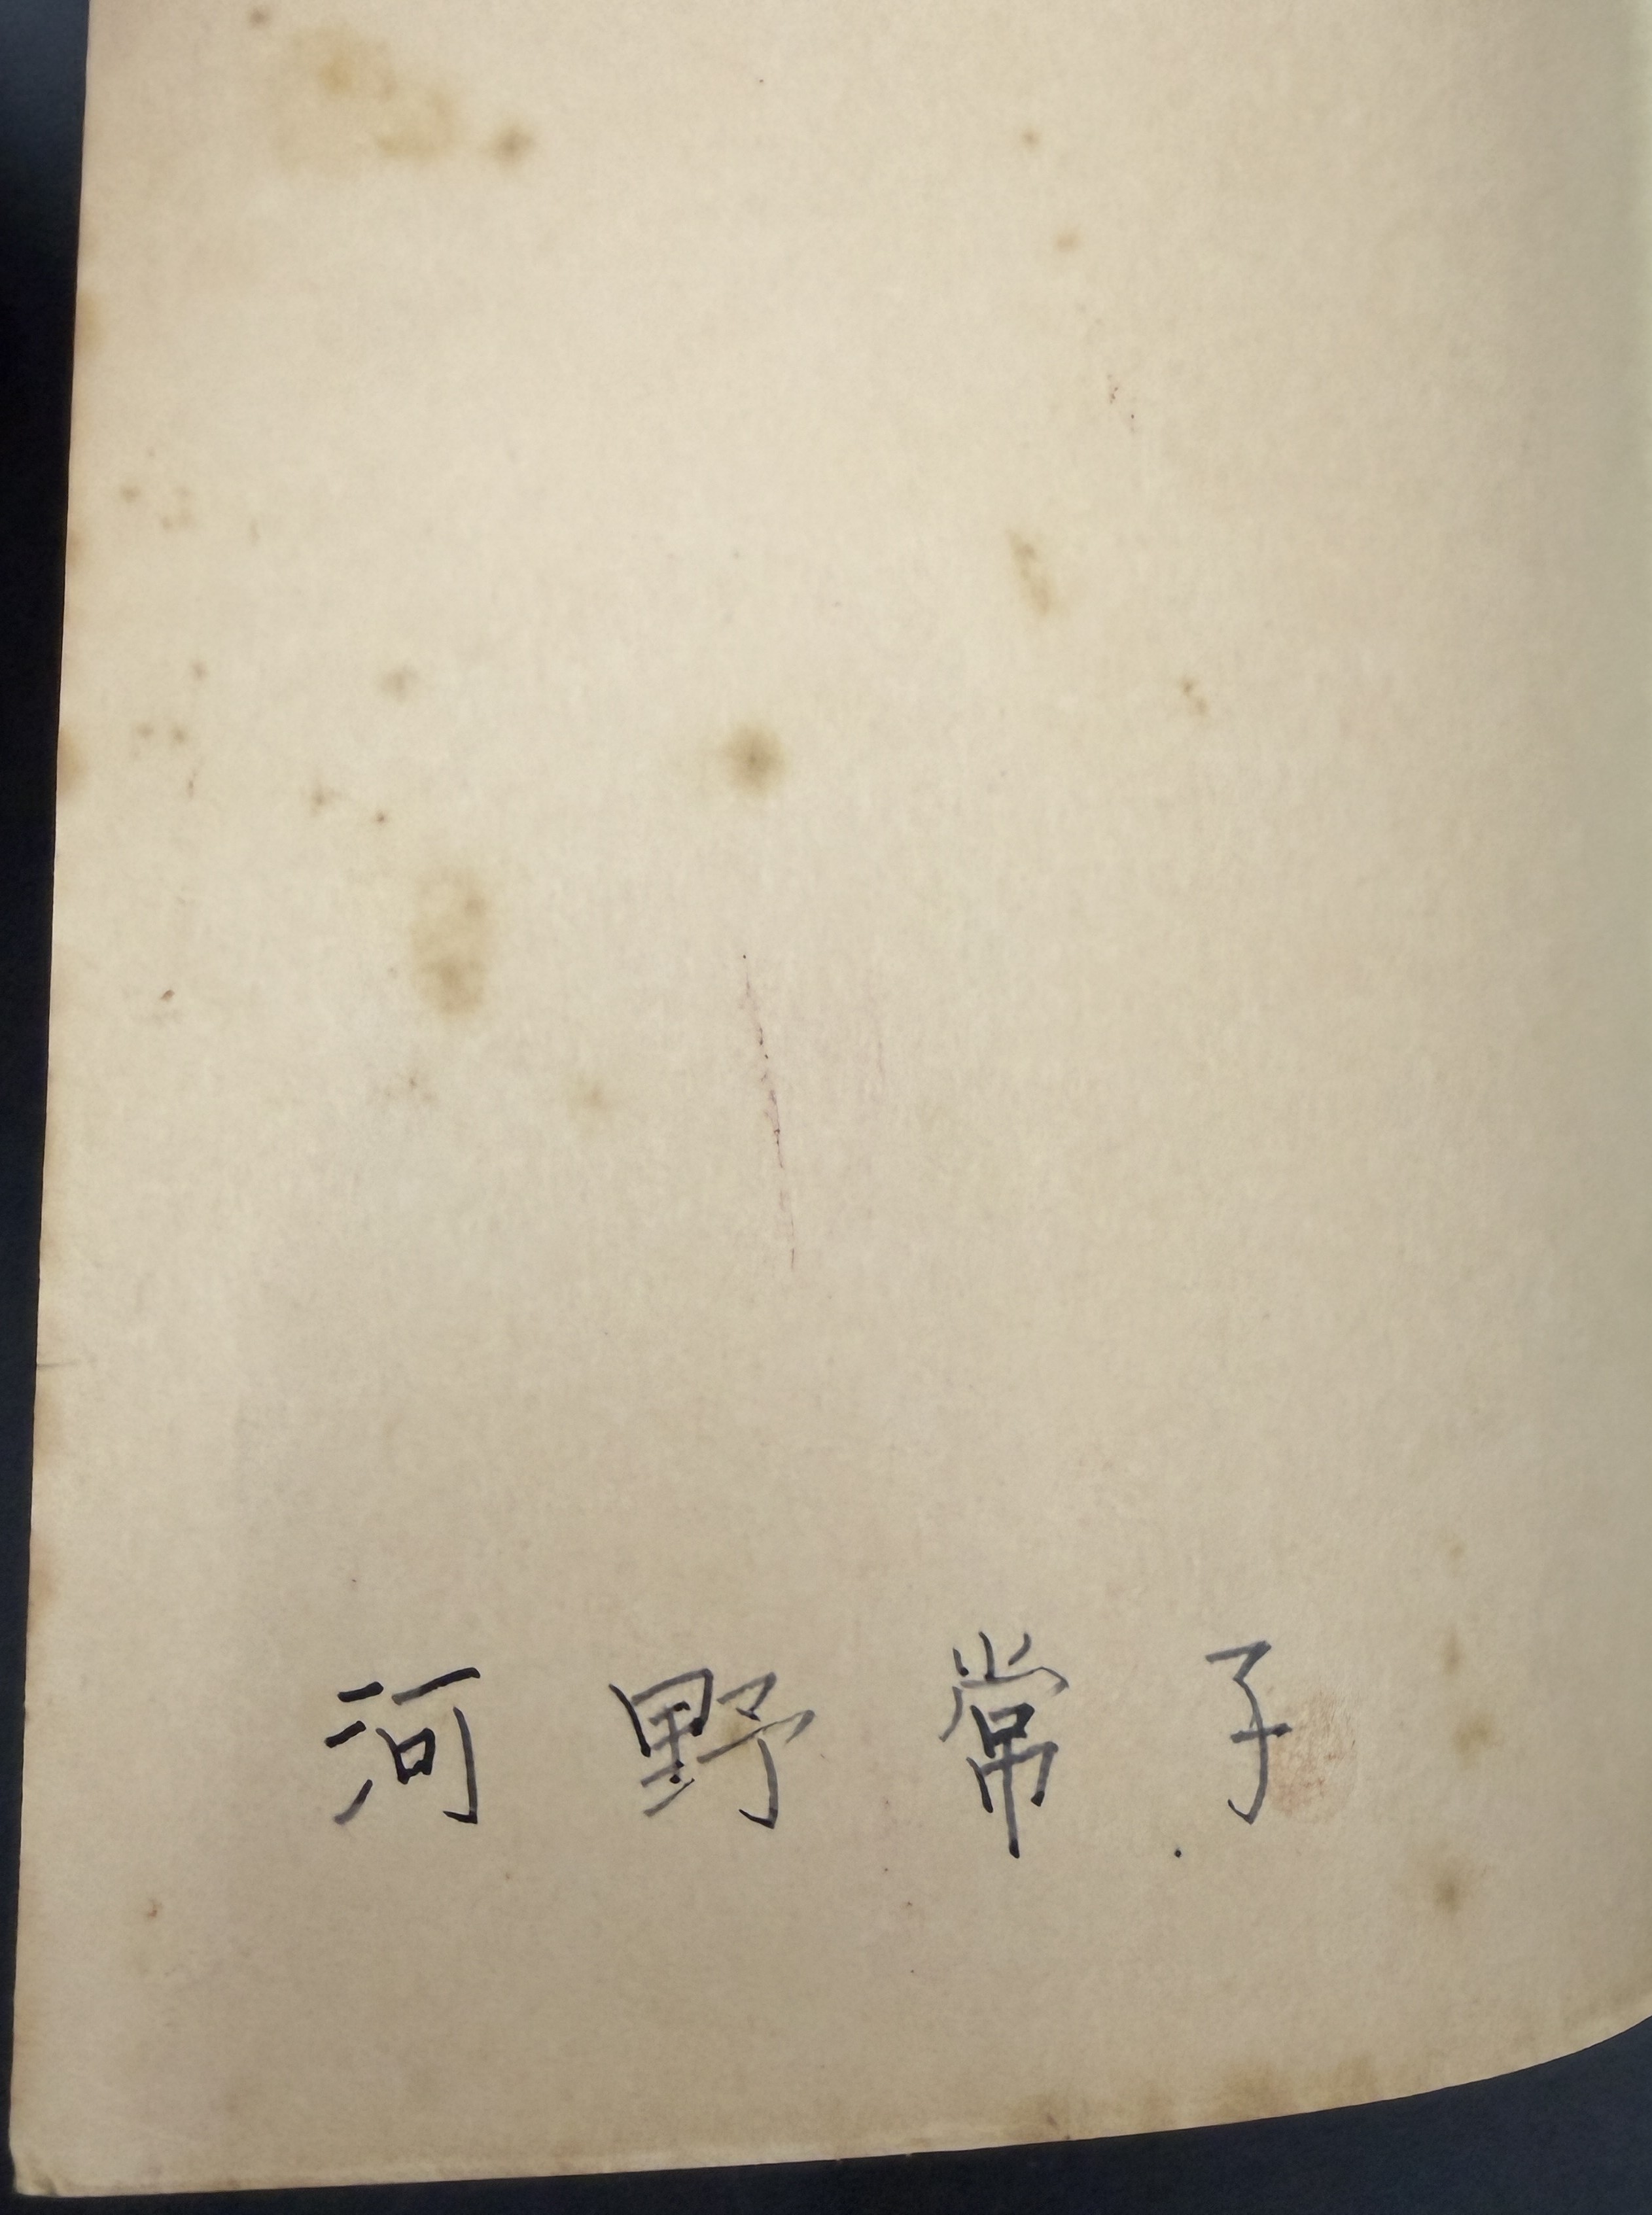 河野常子